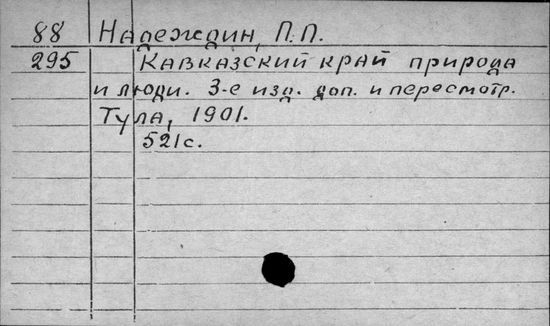 88 Надеждин, П.П.
295 Кавказский край природа
и люди. 3-е изд. доп. и пересмотр.
Тула, 1901.
521с.